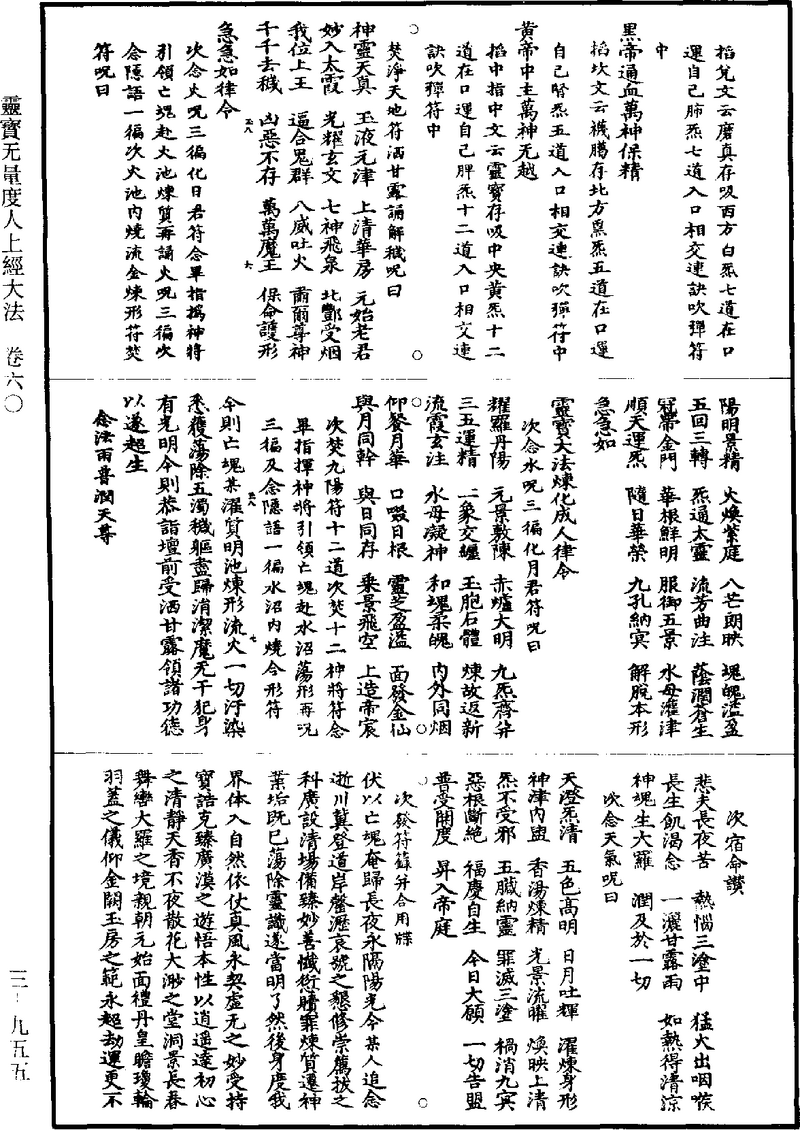 掐兌文云磨真存吸西方白炁七道在口
運自己肺炁七道入口相交連訣吹彈符
中
黑帝通血萬神保精
掐坎文云禨騰存北方黑炁五道在口運
自己腎炁五道入口相交連訣吹彈符中
黃帝中主萬神无越
掐中指中文云靈寶存吸中央黃炁十二
道在口運自己脾炁十二道入口相交連
訣吹彈符中
焚淨天地符洒甘露誦解穢呪曰
神靈天真　玉液元津　上清華房　元始老君
妙入太霞　光耀玄文　七神飛泉　北酆受烟
我位上王　逼合鬼群　八威吐火　爾爾尊神
千千去穢　凶惡不存　萬萬魔王　保命護形
急急如律令
次念火呪三徧化日君符念畢指撝神將
引領亡魂赴火池煉質再誦火呪三徧次
念隱語一徧次火池內燒流金煉形符焚
符呪曰
陽明景精　火煥紫庭　八芒朗映　魂魄溢盈
五回三轉　炁通太靈　流芳曲注　蔭潤蒼生
冠帶金門　華根鮮明　服御五景　水母灌津
順天運炁　隨日華榮　九孔納㝠　解脫本形
急急如
靈寶大法煉化成人律令
次念水呪三徧化月君符呪曰
耀羅丹陽　元景敷陳　赤爐大明　九炁齊并
三五運精　二象交纏　玉胞石體　煉故返新
流霞玄注　水母凝神　和魂柔魄　內外同烟
仰餐月華　口啜日根　靈芝盈溢　面發金仙
與月同幹　與日同存　乘景飛空　上造帝宸
次焚九陽符十二道次焚十二神將符念
畢指揮神將引領亡魂赴水沼蕩形再呪
三徧及念隱語一徧水沼內燒今形符
今則亡魂某濯質明池煉形流火一切汙染
悉獲蕩除五濁穢軀盡歸消潔魔无干犯身
有光明今則恭詣壇前受洒甘露領諸功德
以遂超生
念法雨普潤天尊
次宿命讚
悲夫長夜苦　熱惱三塗中　猛火出咽喉
長生飢渴念　一灑甘露雨　如熱得清涼
神魂生大羅　潤及於一切
次念天氣呪曰
天澄炁清　五色高明　日月吐輝　濯煉身形
神津內盥　香湯煉精　光景流曜　煥映上清
炁不受邪　五臟納靈　罪滅三塗　禍消九㝠
惡根斷絕　福慶自生　今日大願　一切告盟
普受開度　昇入帝庭
次發符籙并合用牒
伏以亡魂奄歸長夜永隔陽光今某人追念
逝川冀登道岸罄瀝哀號之懇修崇薦拔之
科廣設清場備臻妙善懺愆贖罪煉質遷神
業垢既已蕩除靈識遂當明了然後身度我
界体入自然依仗真風永契虛无之妙受持
寶誥克臻廣漠之遊悟本性以逍遥達初心
之清靜天香不夜散花大渺之堂洞景長春
舞鸞大羅之境親朝元始面禮丹皇瞻瓊輪
羽蓋之儀仰金闕玉房之範永超劫運更不
靈寶无量度人上經大法　卷六〇
三－九五五